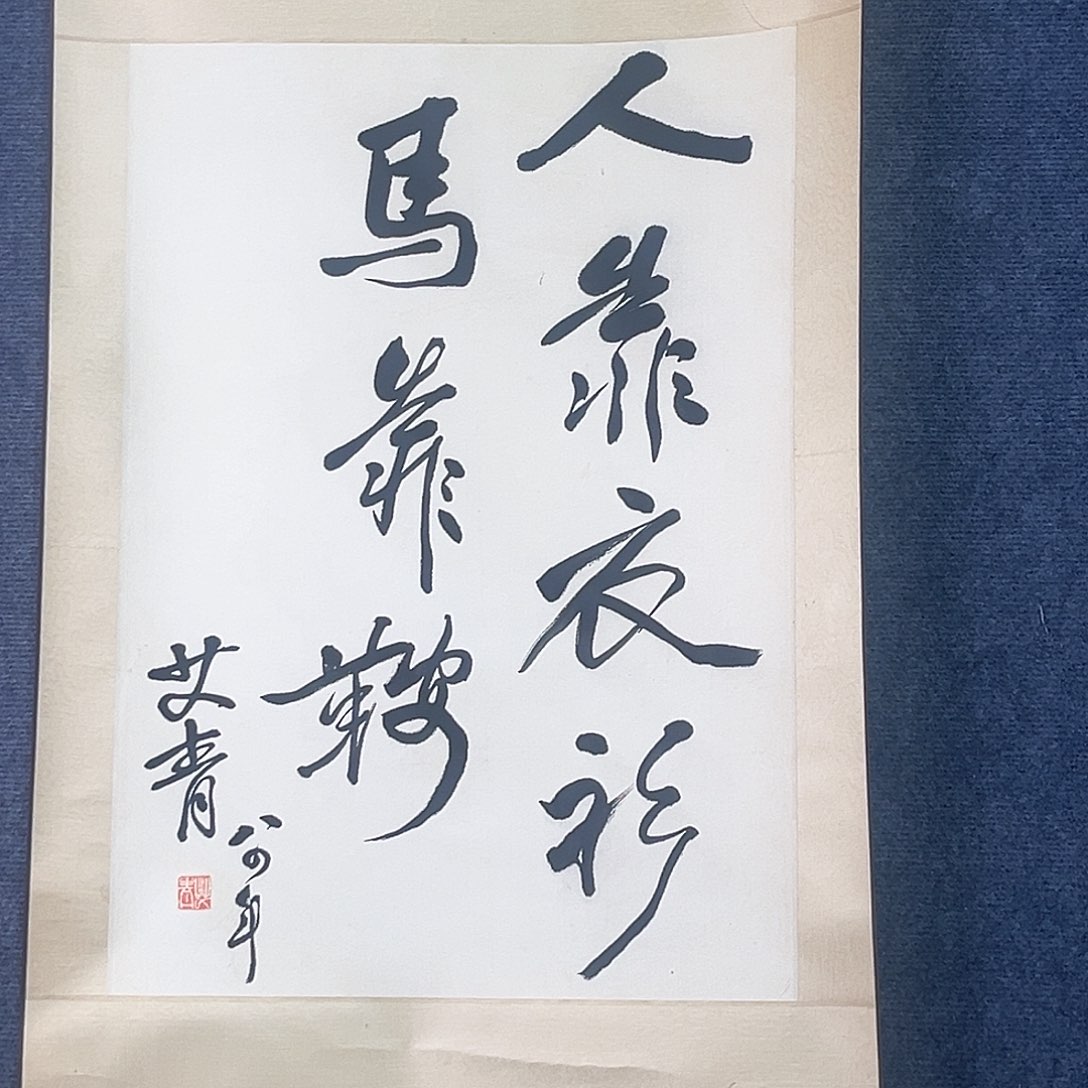 人靠衣衫
馬靠鞍
艾青
八四年